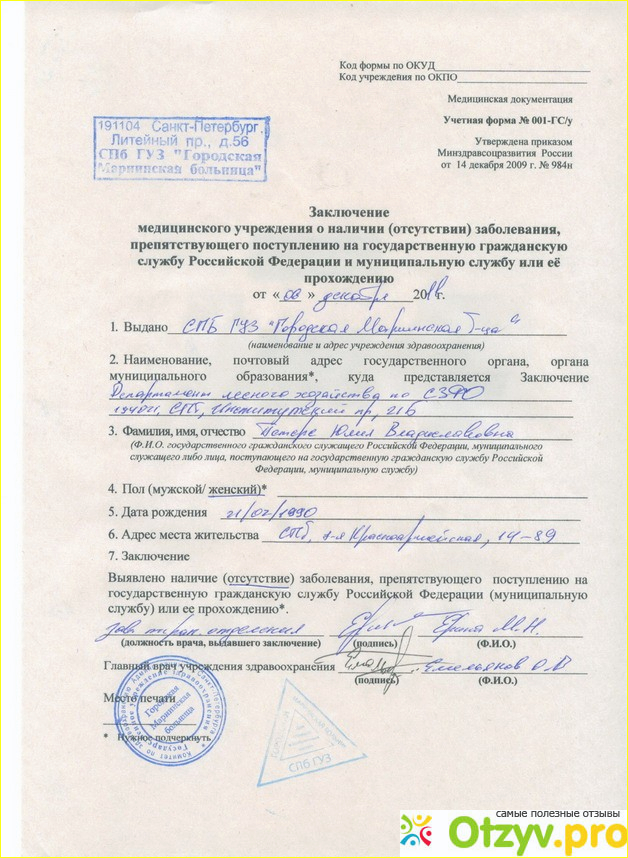 Код формы по ОКУД
Код учреждения по ОКПО
Медицинская документация
Учетная форма № 001-ГС/у
Утверждена приказом
Минздравсоцразвития России
от 14 декабря 2009 г. № 984н
191104 Санкт-Петербург,
Литейный пр., д.56
СПб ГУЗ "Городская
Мариинская больница"
Заключение
медицинского учреждения о наличии (отсутствии) заболевания,
препятствующего поступлению на государственную гражданскую
службу Российской Федерации и муниципальную службу или её
прохождению
от « » декабря 201 г.
1. Выдано СПБ ГУЗ "Городская Мариинская б-ца"
(наименование и адрес учреждения здравоохранения)
2. Наименование, почтовый адрес государственного органа, органа
муниципального образования*, куда представляется Заключение
Департамент лесного хозяйства по СЗФО
194021, СПб, Институтский пр, 21б
3. Фамилия, имя, отчество Петерс Юлия Владиславовна
(Ф.И.О. государственного гражданского служащего Российской Федерации, муниципального
служащего либо лица, поступающего на государственную гражданскую службу Российской
Федерации, муниципальную службу)
4. Пол (мужской/ женский)*
5. Дата рождения 21/02/1990
6. Адрес места жительства СПб, Красноармейская, 14-89
7. Заключение
Выявлено наличие (отсутствие) заболевания, препятствующего поступлению на
государственную гражданскую службу Российской Федерации (муниципальную
службу) или ее прохождению*.
зав. отделения М.Н.
(должность врача, выдавшего заключение) (подпись) (Ф.И.О.)
Главный врач учреждения здравоохранения Емельянов О.В
(подпись) (Ф.И.О.)
Место печати
Городская
Мариинская
больница
* Нужное подчеркнуть
СПб ГУЗ
самые полезные отзывы
Otzyv.pro